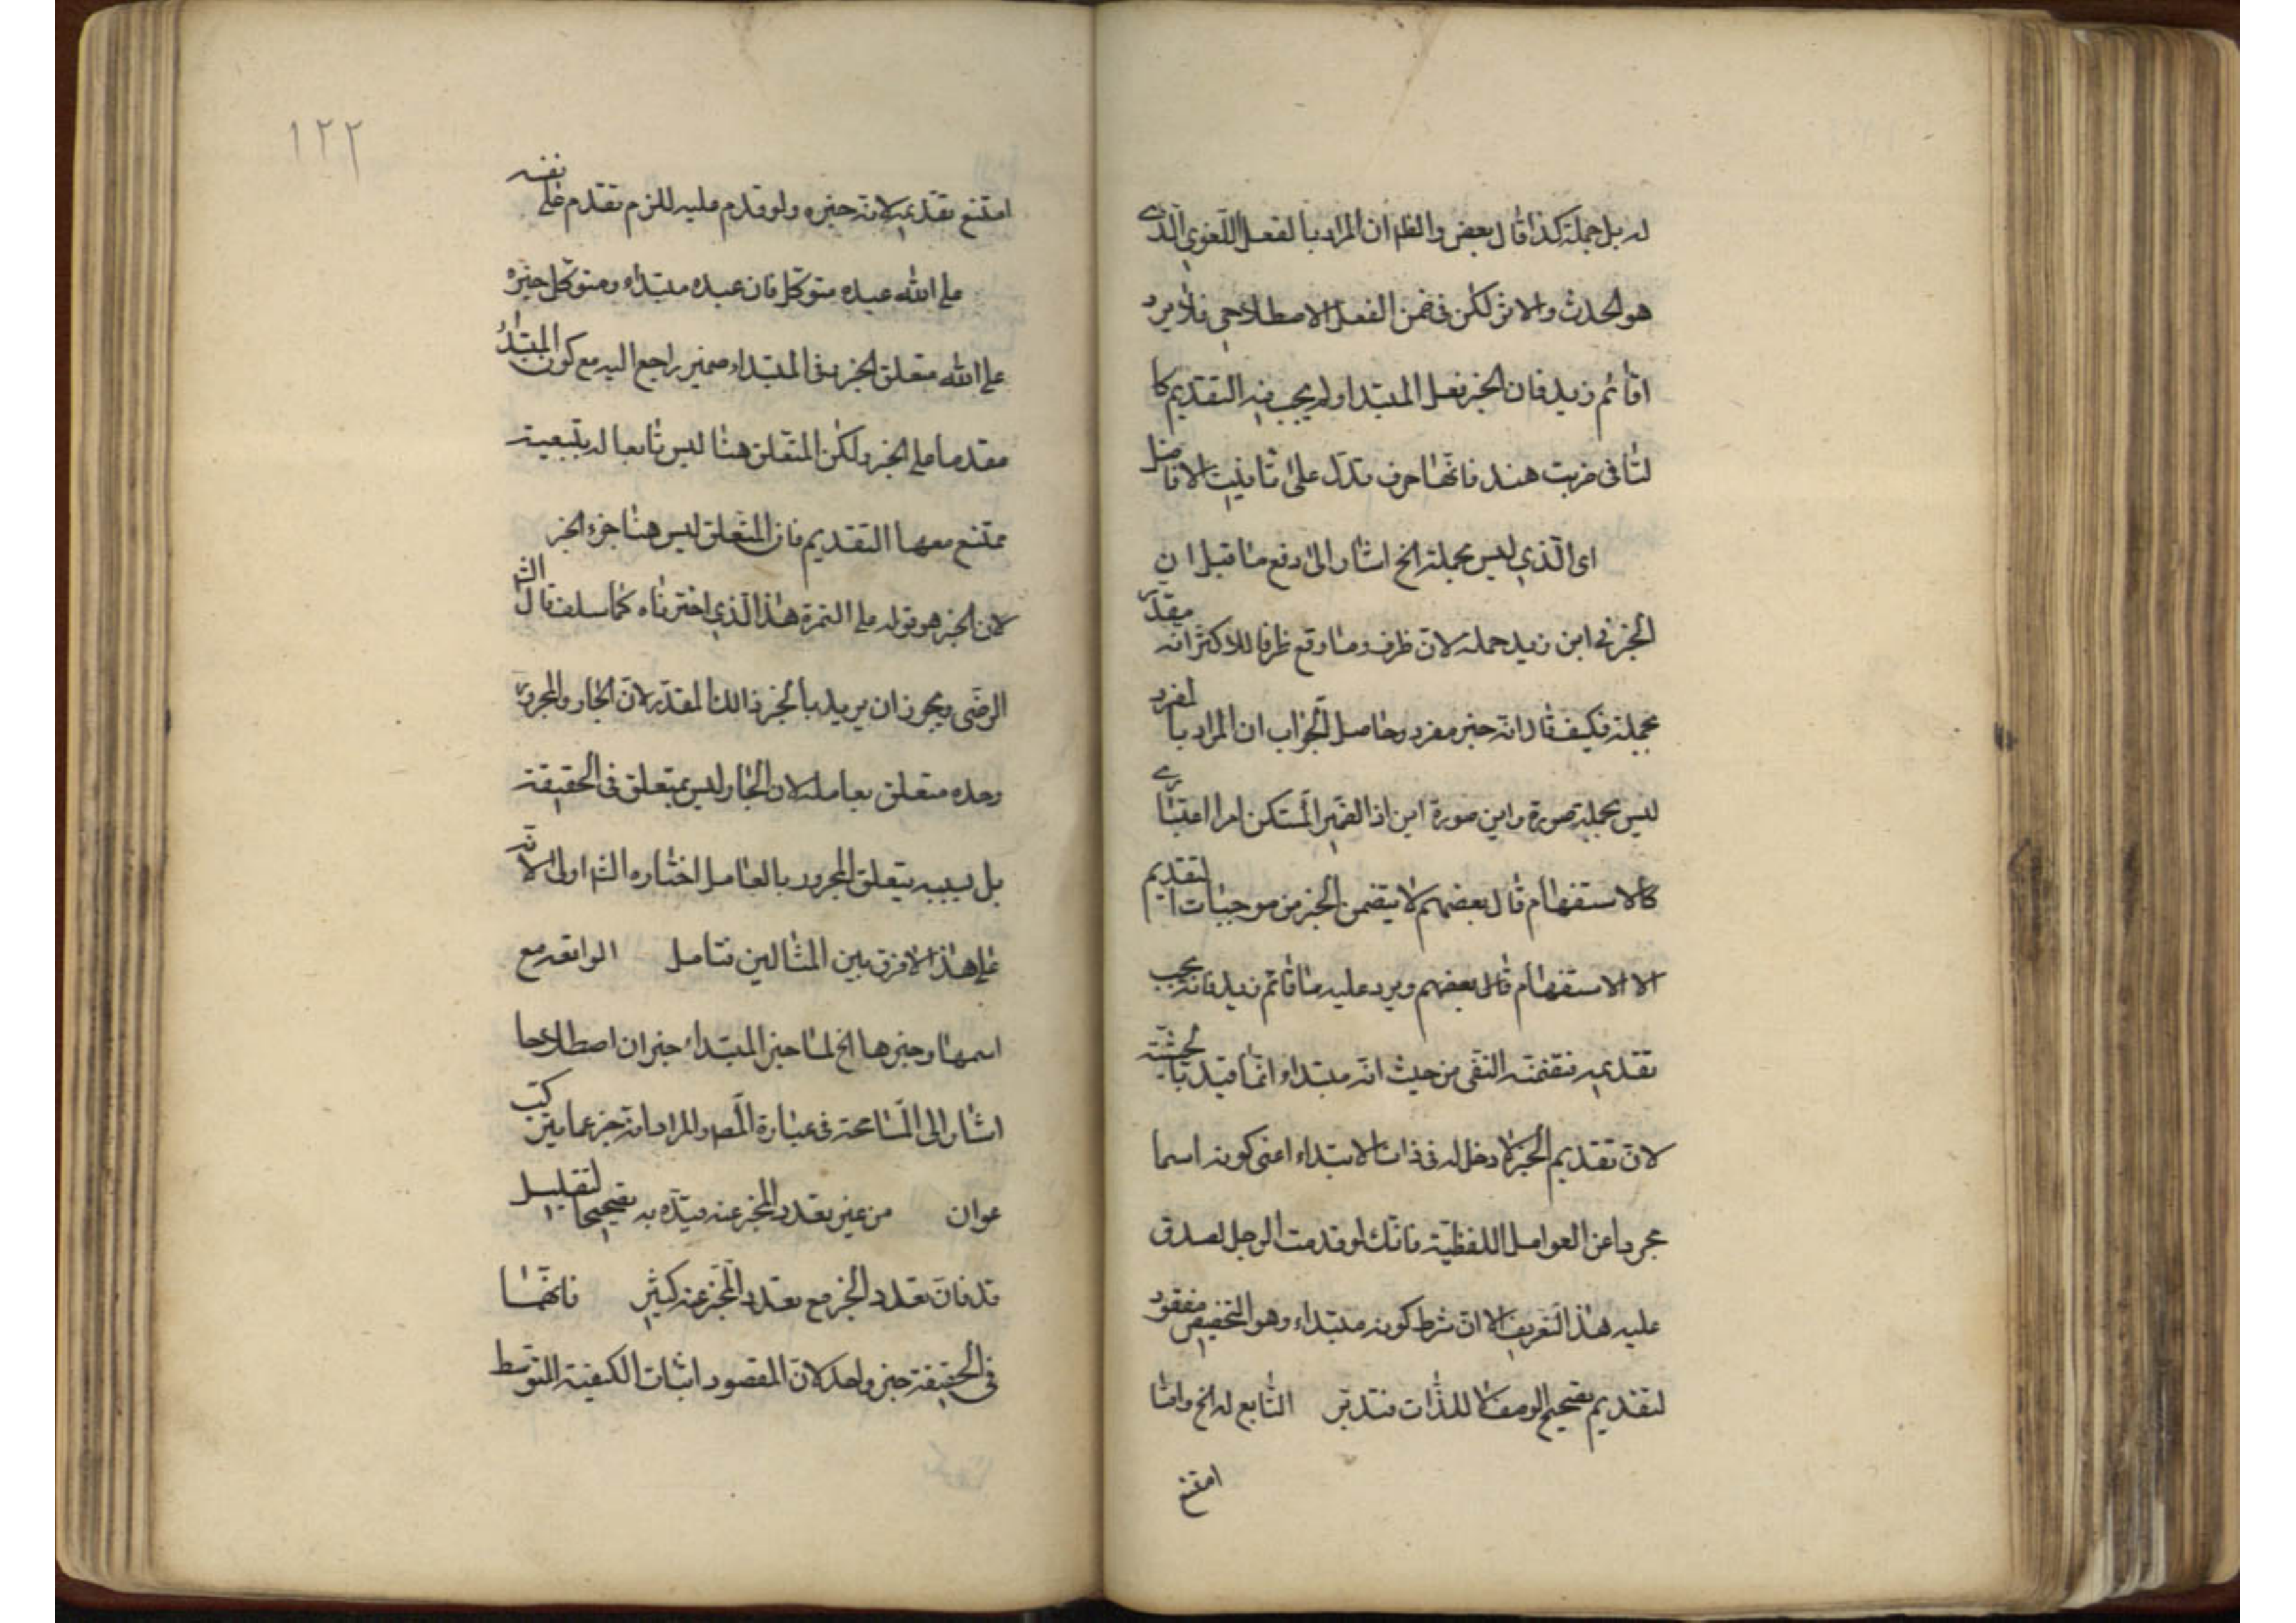 له بل جملة كذا قال بعض والظ ان المراد بالفعل اللغوي الذي
هو الحدث والاثر لكن في ضمن الفعل الاصطلاحي فلا يرد
اقائم زيد فان الخبر فعل المبتدا ولم يجب فيه التقديم كا
لتا في ضربت هند فانها حرف تدل على تانيث الفاعل
اى الذي ليس بجملة الخ اشار الى دفع ما قيل ان
الخبر في اين زيد جملة لان ظرف وما وقع ظرفا للاكثر انه مقدر
بجملة فكيف قال انه خبر مفرد وحاصل الجواب ان المراد بالمفرد
ليس بجملة صورة واين صورة اين اذ الضمير المستكن امر اعتباري
كالاستفهام قال بعضهم لا يتضمن الخبر من موجبات التقديم
الا الاستفهام قال بعضهم ويرد عليه ما قائم زيد فانه يجب
تقديمه لتضمنه النفي من حيث انه مبتداء وانما قيد بالحيثية
لان تقديم الخبر لا دخل له في ذات الابتداء اعني كونه اسما
مجردا عن العوامل اللفظية فانك لو قدمت الرجل لصدق
عليه هذا التعريف الا ان شرط كونه مبتداء وهو التخصيص مفقود
لتقديم تصحيح الوصف لا للذات فتدبر التابع له الخ وانما
امتنع
١٢٢
امتنع تقديمه لانه خبره ولو قدم عليه للزم تقدم على نفسه
على الله عبده متوكل فان عبده مبتداء ومتوكل خبره
على الله متعلق الخبر وفي المبتداء ضمير راجع اليه مع كون المبتدأ
مقدما على الخبر ولكن المتعلق هنا ليس تابعا له بتبعية
ممتنع معها التقديم فان المتعلق ليس هنا جزء الخبر
لان الخبر هو قوله على التمرة هذا الذي اخترناه كما سلف قال الش
الرضى ويجوز ان يريد بالخبر ذالك المقدر لان الجار والمجرور
وحده متعلق بعامله لان الجار ليس بمتعلق في الحقيقة
بل بسببه يتعلق المجرور بالعامل اختاره الش اولى لانه
على هذا لا فرق بين المثالين فتامل الواقعه مع
اسمها وخبرها الخ لما خبر المبتداء خبر ان اصطلاحا
اشار الى المسامحة في عبارة المص والمراد انه خبر عما يتركب
عن ان من غير تعدد المخبر عنه قيده به تصحيحا لتقليل
قد فان تعدد الخبر مع تعدد المخبر عنه كثير فانهما
في الحقيقة خبر واحد لان المقصود اثبات الكيفية المتوسط